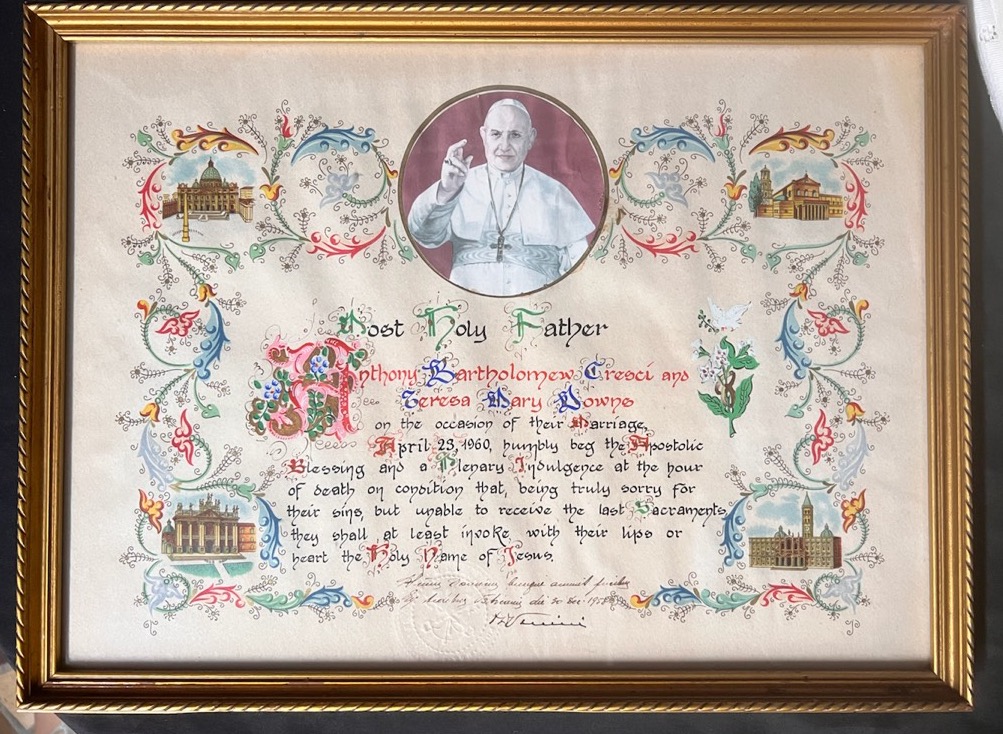 Most Holy Father
Anthony Bartholomew Cresci and
Teresa Mary Downs
on the occasion of their Marriage,
April 23, 1960, humbly beg the Apostolic
Blessing and a Plenary Indulgence at the hour
of death on condition that, being truly sorry for
their sins, but unable to receive the last Sacraments,
they shall at least invoke with their lips or
heart the Holy Name of Jesus.
benigne annuit